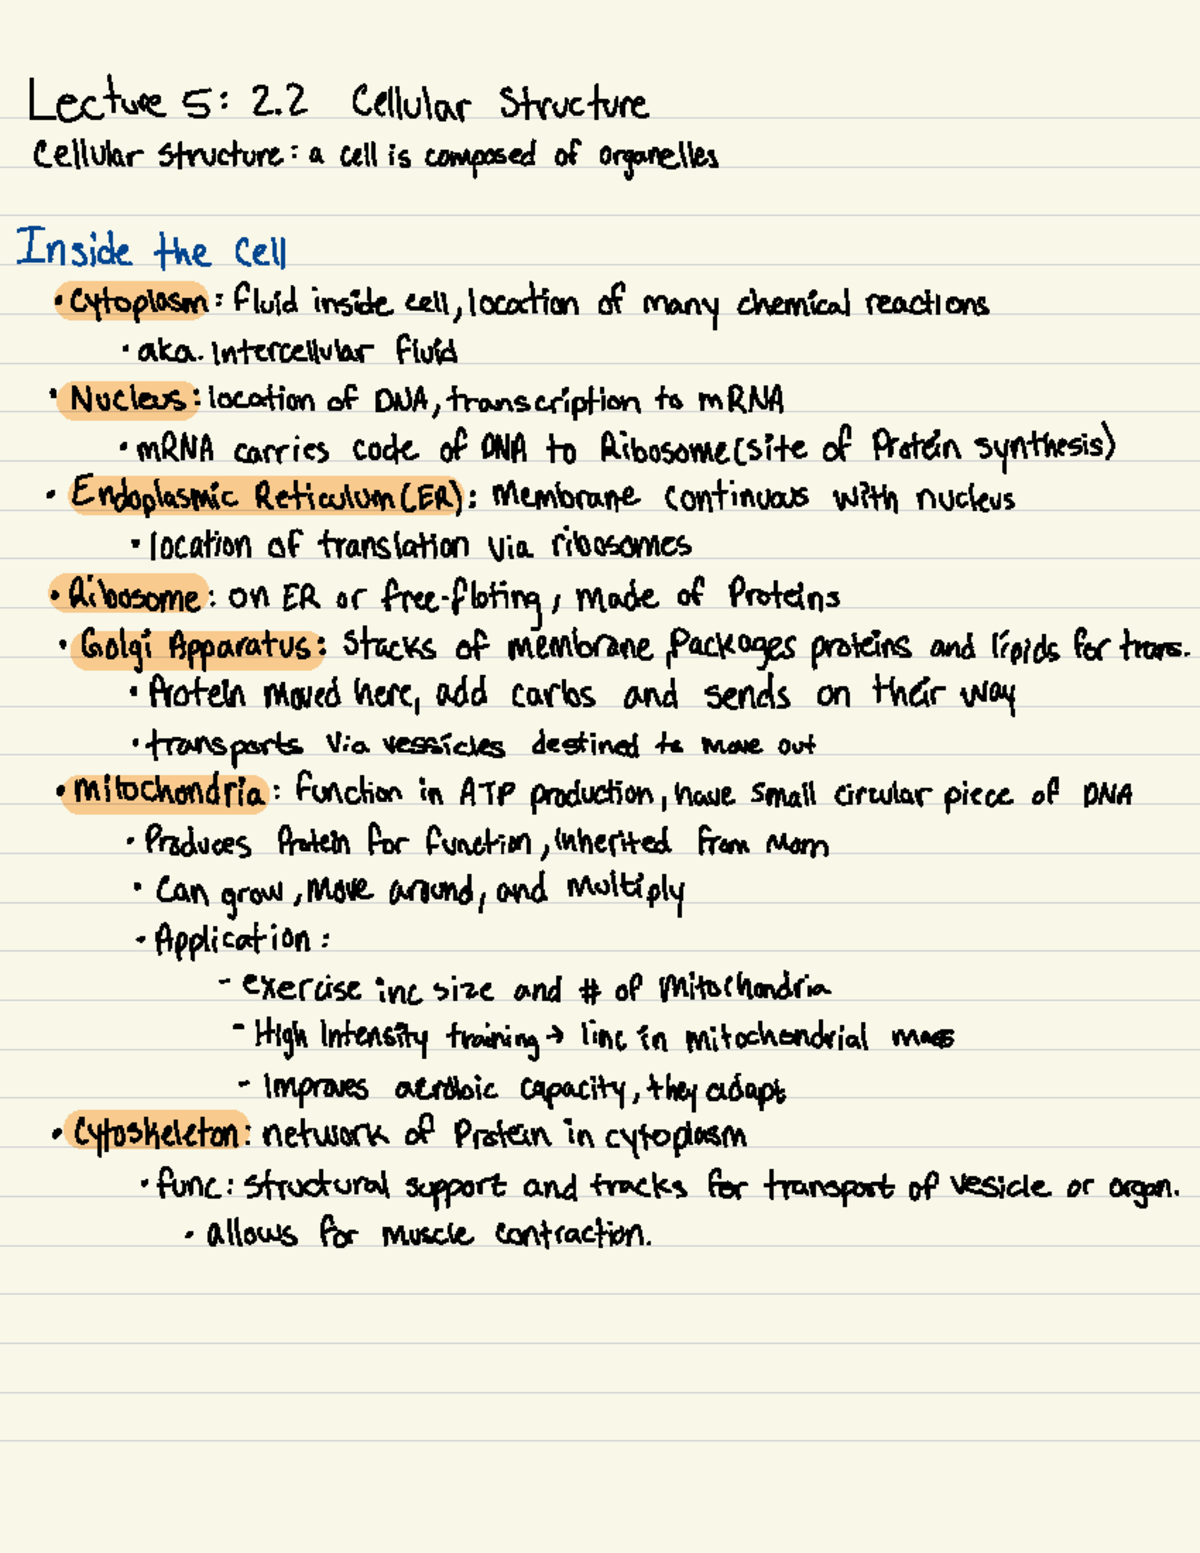 Lecture 5: 2.2 Cellular Structure
Cellular structure: a cell is composed of organelles
Inside the Cell
• Cytoplasm: fluid inside cell, location of many chemical reactions
• aka. Intercellular fluid
• Nucleus: location of DNA, transcription to mRNA
• mRNA carries code of DNA to Ribosome (site of Protein synthesis)
• Endoplasmic Reticulum (ER): Membrane continuous with nucleus
• location of translation via ribosomes
• Ribosome: on ER or free-floting, made of Proteins
• Golgi Apparatus: Stacks of membrane, Packages proteins and lipids for trans.
• Protein moved here, add carbs and sends on their way
• transports via vessicles destined to move out
• mitochondria: function in ATP production, have small circular piece of DNA
• Produces Protein for function, inherited from Mom
• Can grow, move around, and multiply
- Application:
- exercise inc size and # of mitochondria
- High Intensity training → inc in mitochondrial mass
- Improves aerobic capacity, they adapt
• Cytoskeleton: network of Protein in cytoplasm
• func: structural support and tracks for transport of vesicle or organ.
• allows for muscle contraction.